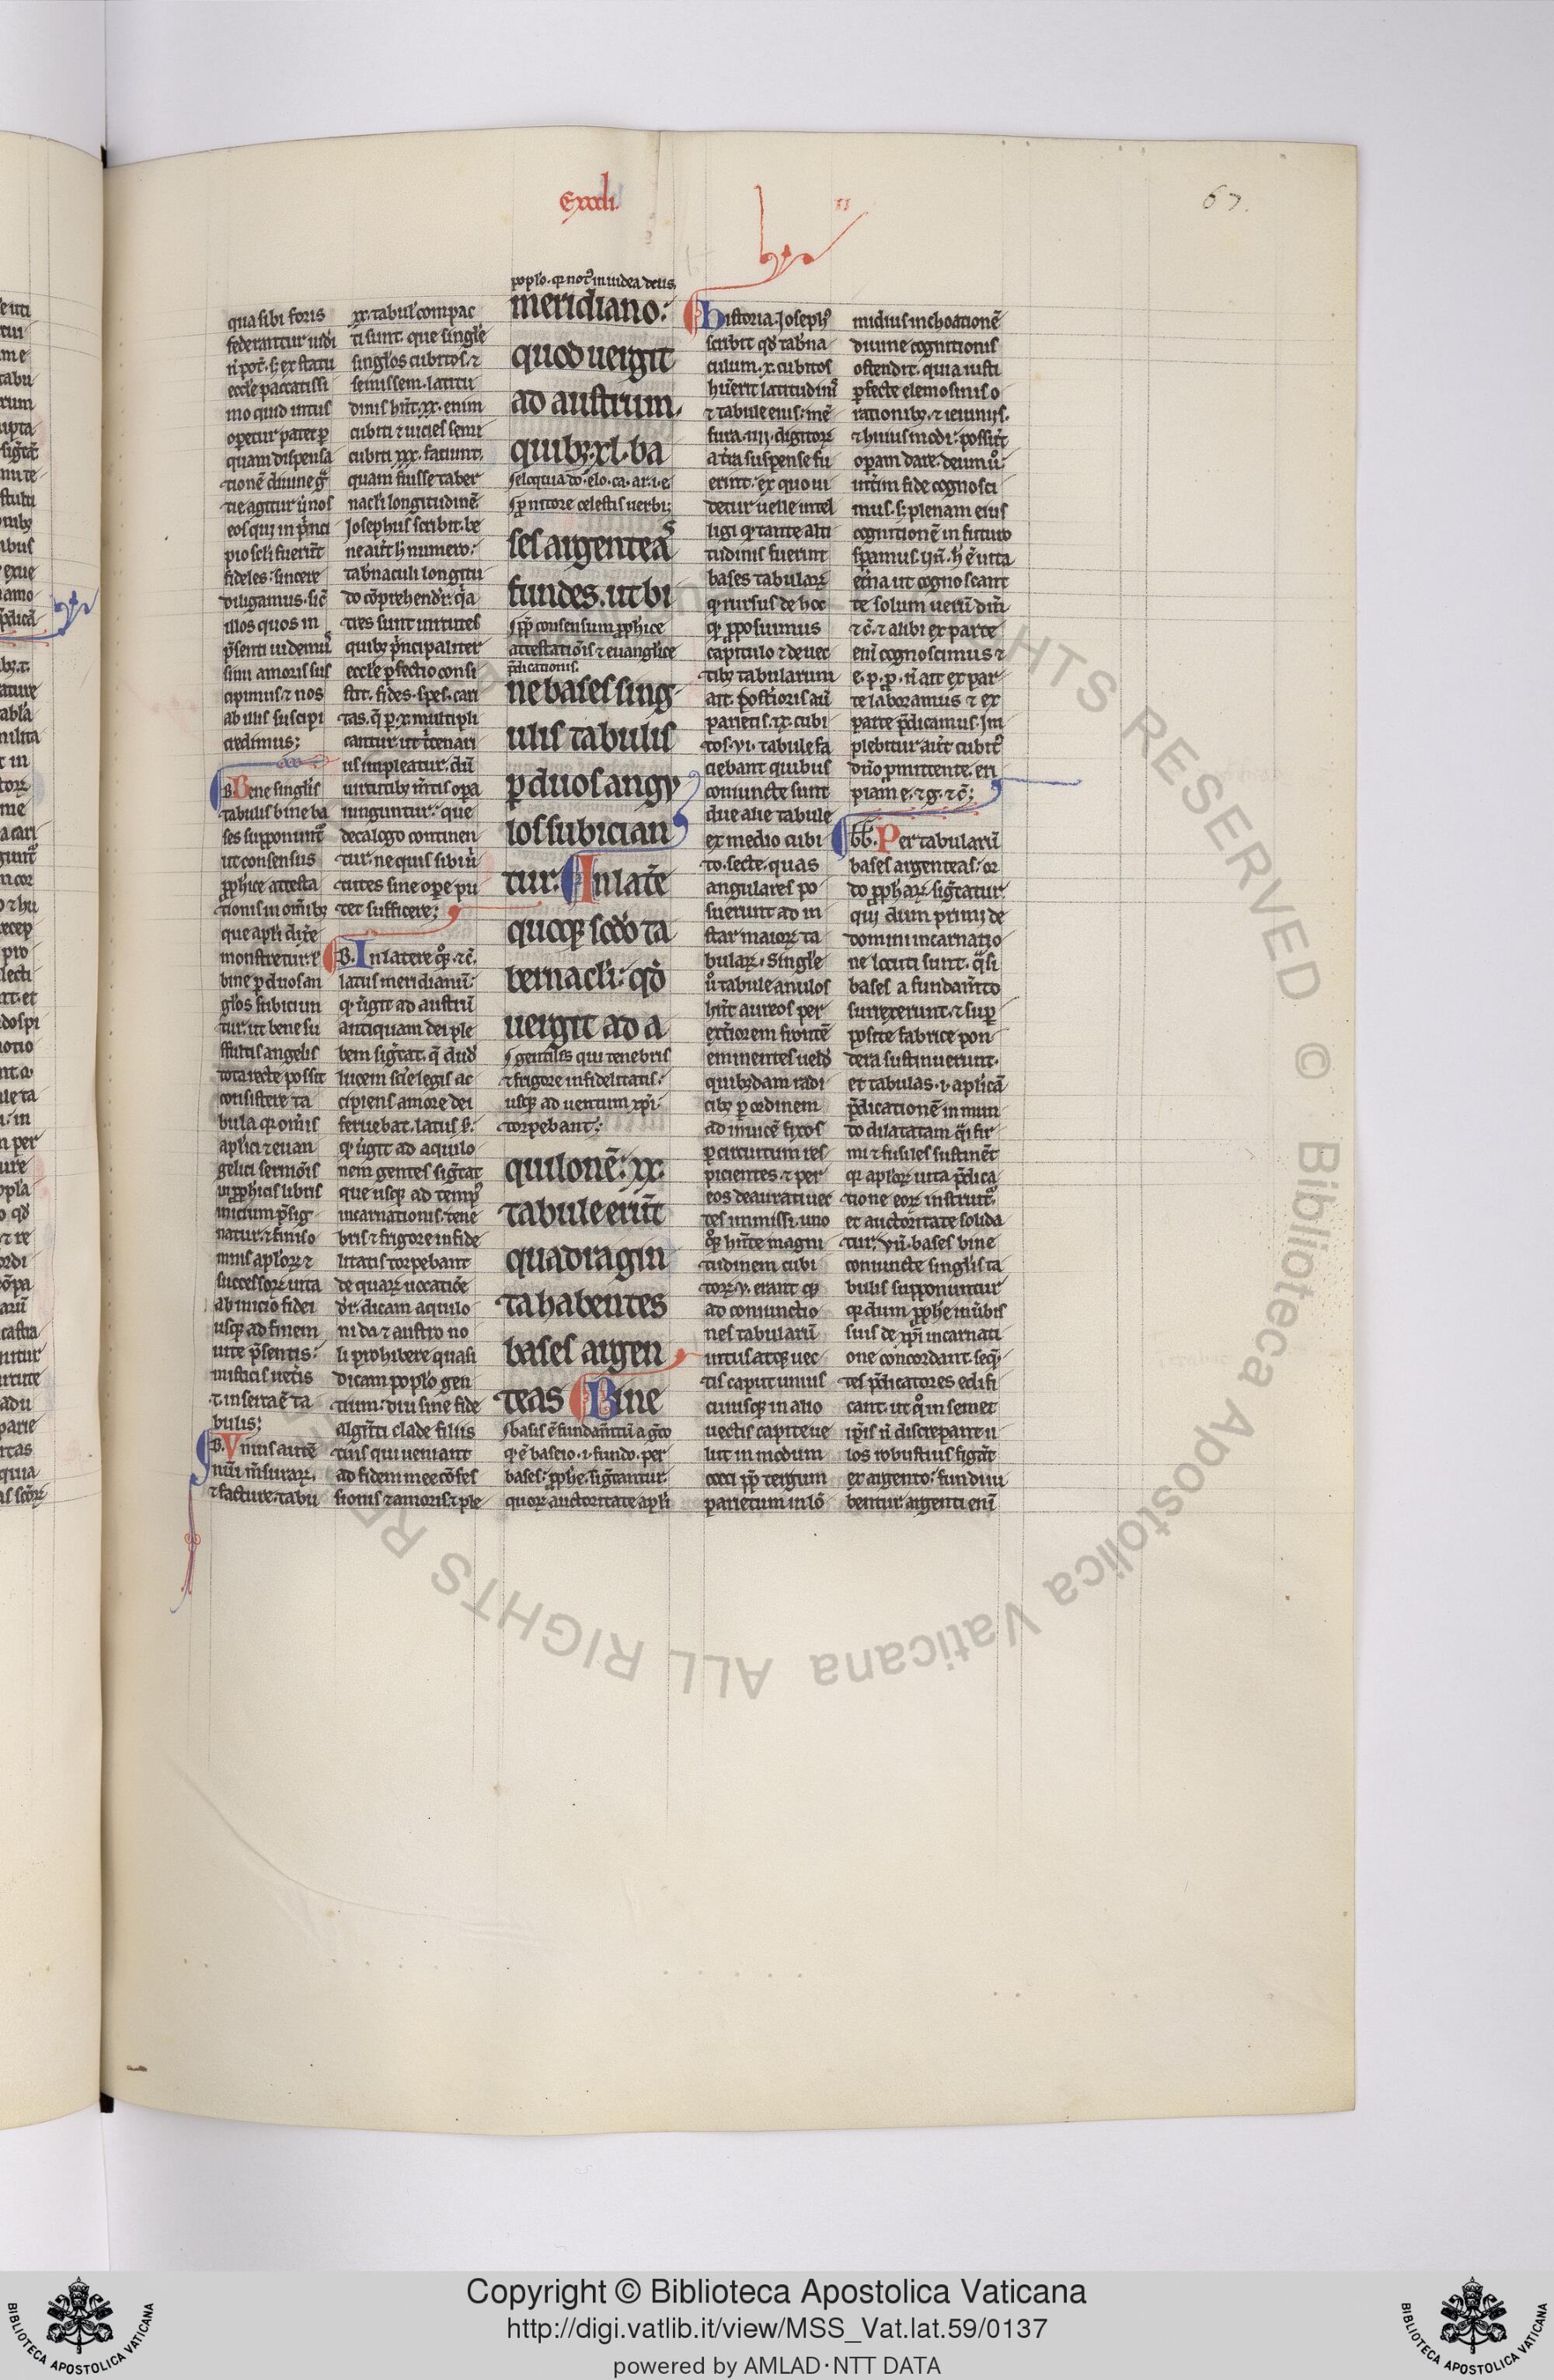 Exodi.
67.
qua sibi foris
federantur uidi
n̄ pot̄. s; ex statu
eccl̄e paccatissi
mo quid intus
operetur pater ꝑ
quam dispensa
tionē diuine gr̄
tie agitur ỹ nos
eos qui in p̄nci
pio sc̄li fuer̄t
fideles sincere
diligamus. sic̄
illos quos in
p̄senti uidemꝰ
sinu amoris sus
cipimus ⁊ nos
ab illis suscipi
credimus;
B. Bene singl̄is
tabulis bine ba
ses supponunt᷑
ut consensus
ꝓph̄ice attesta
tionis in om̄ibꝫ
que apl̄i dix̄e
monstretur. ⁊
bine ꝑ duos an
gl̄os subiciun
tur. ut bene su
ffultis angelis
tota recte possit
consistere ta
bula qꝛ om̄is
apl̄ici ⁊ euan
gelici sermōis
in ꝓph̄icis libris
inicium p̄sig
natur. ⁊ finis o
mnis apl̄oꝝ ⁊
successoꝝ uita
ab inicio fidei
usqꝫ ad finem
uite p̄sentis:
misticis uet̄is
t. inserta ē ta
bulis;
B. Vnius autē
nūi m̄suraꝝ.
⁊ facture. tabu
xx. tabul̄ compac
ti sunt. que singl̄e
singl̄os cubitos. ⁊
semissem. latitu
dinis hn̄t. xx. enim
cubiti ⁊ uicies semi
cubiti xxx. faciunt.
quam fuisse taber
nacl̄i longitudinē.
Josephus scribit. be
ne aūt h̄ numero:
tab̄naculi longitu
do cōprehendit᷑. q̄a
tres sunt uirtutes
quibꝫ p̄ncipaliter
eccl̄e ꝑfectio consi
stit. fides. spes. cari
tas. q̄ ꝑ. x. multipli
cantur ut t̄cenari
us impleatur. dū
uirtutibꝫ m̄tis oꝑa
iunguntur: que
decalogo continen
tur. ne quis sibi ū
tutes sine oꝑe pu
tet sufficere;
B. In latere qͦꝫ. ⁊c̄.
latus meridianū.
qͣ ūgit ad austrū
antiquam dei ple
bem sigt̄at. q̄ dud̄
lucem scīe legis ac
cipiens amore dei
feruebat. latus s̄.
qͣ ūgit ad aquilo
nem gentes sigt̄at
que usqꝫ ad tempꝰ
incarnationis. tene
bris ⁊ frigore infide
litatis torpebant
de quaꝝ uocatiōe
dr̄. dicam aquilo
ni da ⁊ austro no
li prohibere quasi
dicam poplo gen
tium: diu sine fide
alḡti clade filiis
tuis qui ueniant
ad fidem mee cōfes
sionis ⁊ amoris. ⁊ ple
poplo. qꝛ notꝰ in iudea deus
meridiano:
quod uergit
ad austrum.
quibꝫ. xl. ba
s. eloqͥua dn̄i. elo. ca. ar. i. e
s. ꝓ nitore celestis uerbi;
ses argenteas
fundes. ut bi
s. ꝓp̄ consensum ꝓph̄ice
attestatiōis ⁊ euangl̄ice
p̄dicationis.
ne bases sing
ulis tabulis
ꝑ duos angu
los subician
tur. In lat̄e
quoqꝫ sc̄do ta
bernacl̄i: qd̄
uergit ad a
s. gentiles qui tenebris
⁊ frigore infidelitatis:
usqꝫ ad uentum xp̄i
torpebant:
quilonē: xx.
tabule erūt
quadragin
ta habentes
bases argen
teas Bine
s. basis ē fundam̄tū a gͣco
qͦ ē baseio. i. fundo. per
bases: ꝓph̄e. sigt̄antur.
quoꝝ auctoritate apl̄i
Historia. Josephꝰ
scribit qd̄ tab̄na
culum. x. cubitos
hūerit latitudinis
⁊ tabule eius: mē
sura. iiii. digitoꝝ
a t̄ra suspense fu
erint: ex quo ui
detur uelle intel
ligi qꝛ tante alti
tudinis fuerint
bases tabulaꝝ
qꝛ rursus de hoc
qͣ ꝓposuimus
capitulo ⁊ de uec
tibꝫ tabularum
ait. posterioris aū
parietis. ix. cubi
tos. vi. tabule fa
ciebant quibus
coniuncte sunt
due alie tabule
ex medio cubi
to. secte. quas
angulares po
suerunt ad in
star maioꝝ ta
bulaꝝ. Singl̄e
ū tabule anulos
hn̄t aureos per
ext̄iorem frontē
eminentes uelud
quibꝫdam radi
cibꝫ ꝑ ordinem
ad inuicē fixos
ꝑ circuitum res
picientes. ⁊ per
eos deaurati uec
tes immissi. uno
qͦꝫ hn̄te magni
tudinem cubi
toꝝ. v. erant qꝫ
ad coniunctio
nes tabularū
intus atqꝫ uec
tis caput unius
cuiusqꝫ in alio
uectis capite ue
lut in modum
cocci ꝓp̄ tergum
parietum in lō
midius inchoationē
diuine cognitionis
ostendit. quia iusti
ꝑfecte elemosinis o
rationibꝫ. ⁊ ieiuniis.
⁊ huiusmodi: possūt
oꝑam dare. deum ū
int̄im fide cognosci
mus. s; plenam eius
cognitionē in futuro
sꝑamus. ỹn̄. h̄ ē uita
et̄na ut cognoscant
te solum uerū dm̄
⁊ c̄. ⁊ alibi ex parte
enī cognoscimus ⁊
e. p. ꝓ. n̄ ait ex par
te laboramus ⁊ ex
parte p̄dicamus. Im
plebitur aūt cubitꝰ
dn̄o ꝓmittente. eri
piam e. ⁊ g. ⁊ c̄;
bb. Per tabularū
bases argenteas: or
do ꝓph̄aꝝ sigt̄atur
qui dum primi de
domini incarnatio
ne locuti sunt. q̄si
bases a fundam̄to
surrexerunt. ⁊ suꝑ
posite fabrice pon
dera sustinuerunt.
et tabulas. i. apl̄icā
p̄dicationē in mun
do dilatatam q̄si fir
mi ⁊ fusiles sustinēt
qꝛ apl̄oꝝ uita p̄dica
tione eoꝝ instruit᷑
et auctoritate solida
tur. ỹn̄. bases bine
coniuncte singl̄is ta
bulis supponuntur
qꝛ dum ꝓph̄e in ūbis
suis de xp̄i incarnati
one concordant. seq̄
tes p̄dicatores edifi
cant. ut qͦ in semet
ip̄is n̄ discrepare n
los robustius figāt
ex argento: fundi iu
bentur. argenti enī